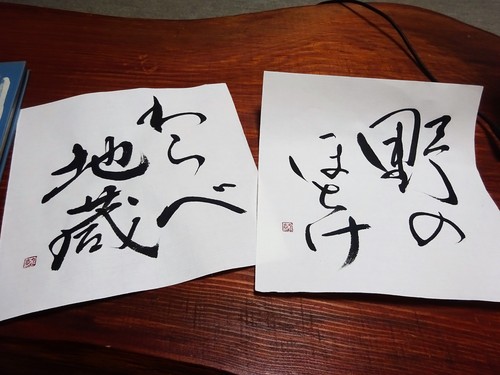 わらべ
地蔵
野の
ほとけ